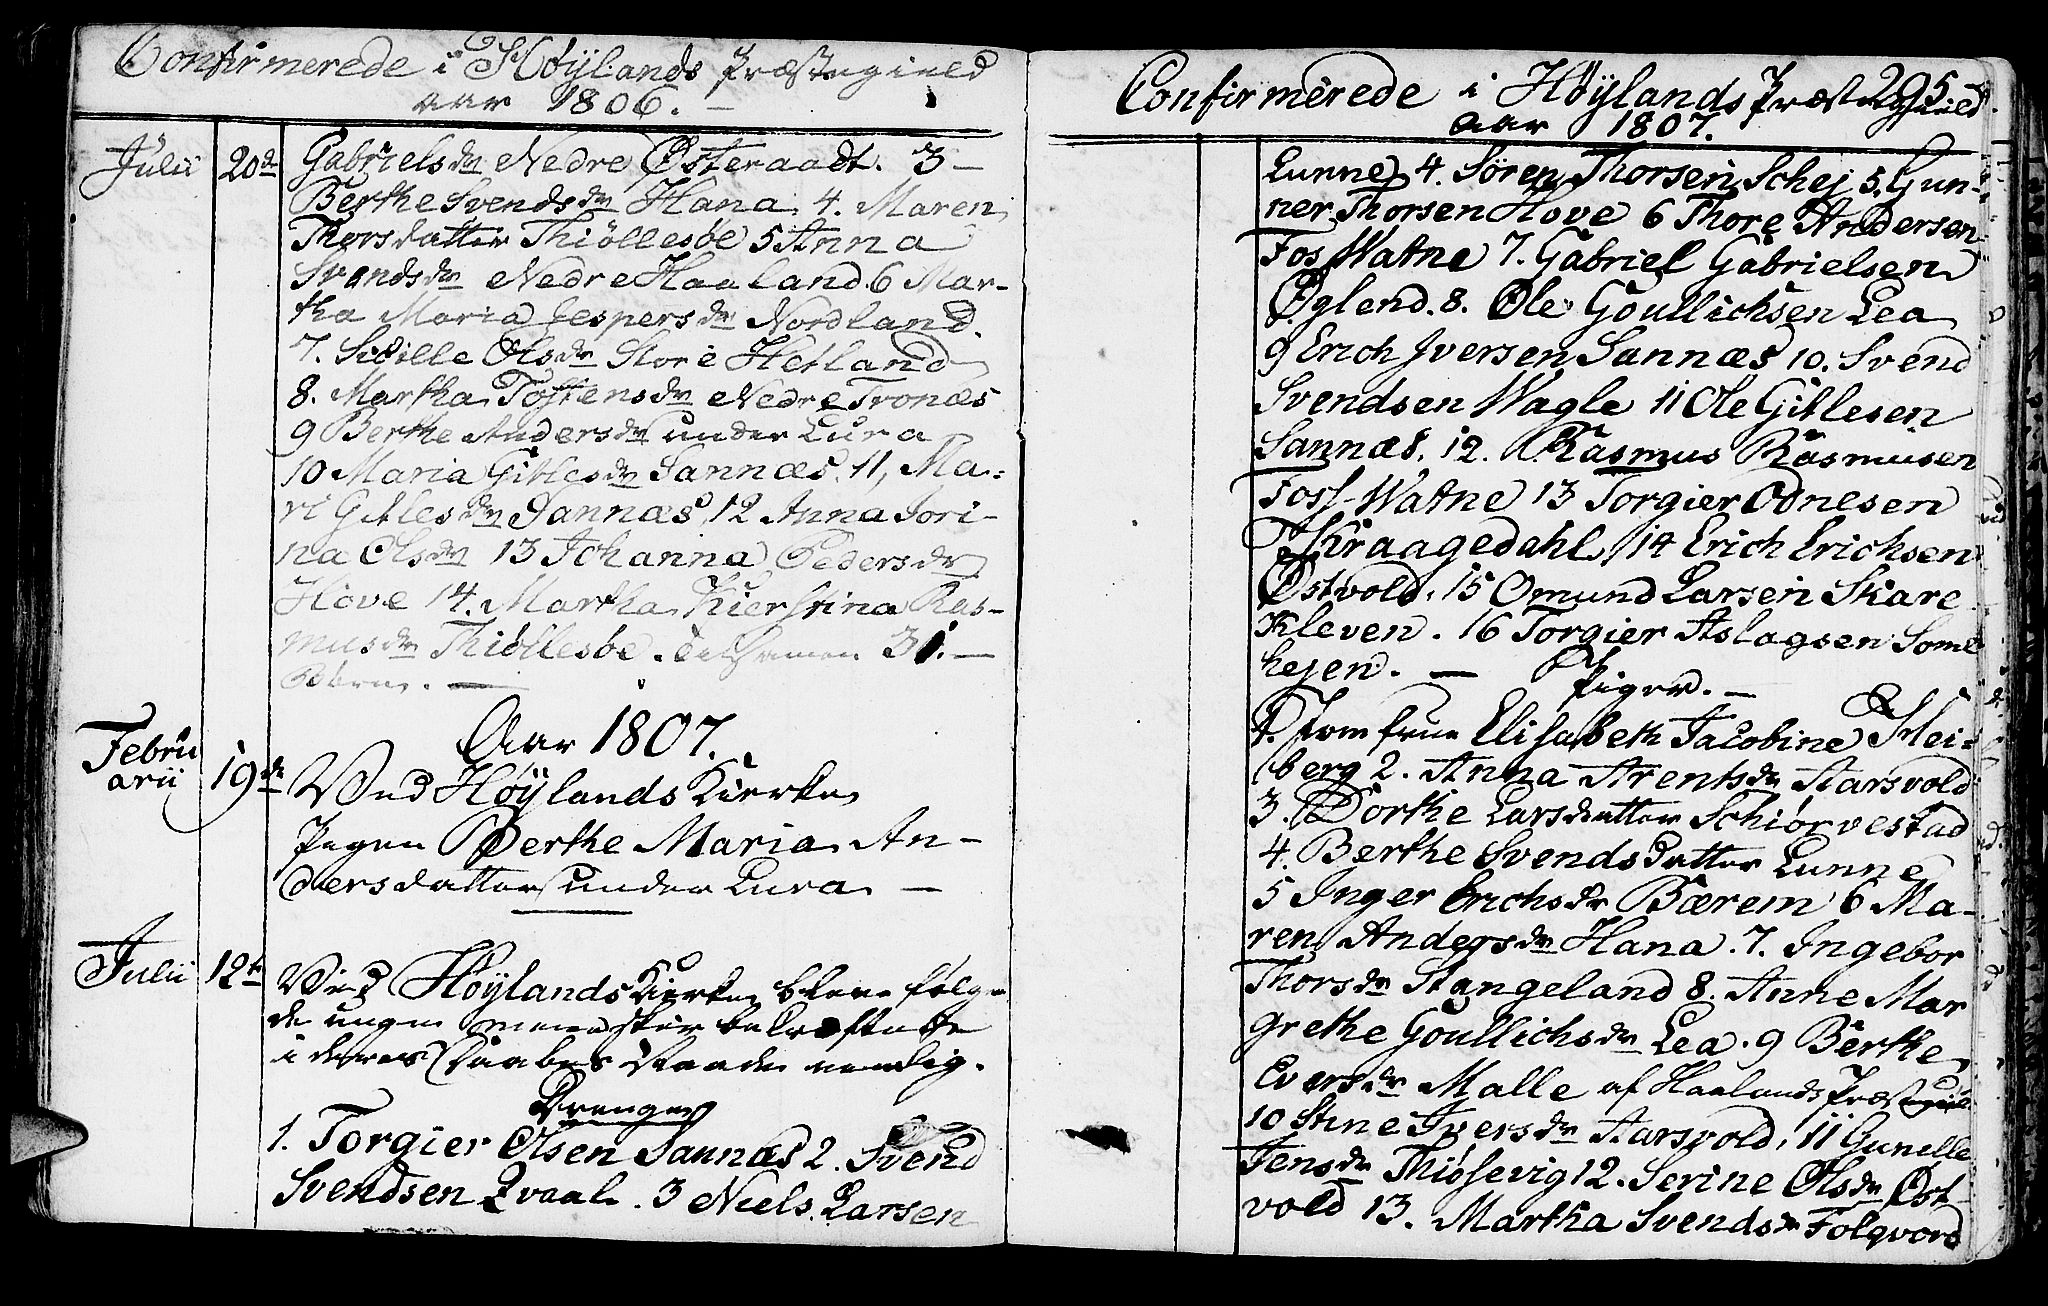 Confirmerede i Höylands Præstegield
Aar 1806.
Julii 20de Gabrielsdr Nedre Østeraadt. 3
Berthe Svendsdr Hana 4. Maren
Thorsdatter Thiöllesbe 5 Anna
Svendsdr Nedre Haaland 6 Mar-
tha Maria Jespersdr Nordland.
7. Sidille Olsdr Store Hetland
8. Martha Tostensdr Nedre Tronæs
9 Berthe Andersdr under Lura
10 Maria Gitlesdr Sannæs. 11, Ma-
ri Gitlesdr Sannæs 12 Anna Jori-
na Olsdr 13 Johanna Pedersdr
Hove 14. Martha Kierstina Ras-
musdr Thiöllesbe. Tilsamen 31. —
Börn. —
Aar 1807.
Febru
arii 19de Ved Höylands Kierke
Pigen Berthe Maria An-
dersdatter under Lura —
Julii 12te Ved Höylands Kierke bleve følgen
de unge mennesker bekræftede
i deres Daabes Naade nemlig.
Drenge
1. Torgier Olsen Sannæs 2. Svend
Svendsen Qvaal. 3 Niels Larsen
295
Confirmerede i Höylands Præstegield
Aar 1807.
Lunne 4. Sören Thorsen Schej 5. Gun-
ner Thorsen Hove 6 Thore Andersen
Foss Watne 7. Gabriel Gabrielsen
Øglend. 8. Ole Goullichsen Lea
9 Erich Iversen Sannæs 10. Svend
Svendsen Wagle 11 Ole Gitlesen
Sannæs. 12. Rasmus Rasmusen
Foss-Watne 13 Torgier Odnesen
Kraagedahl 14 Erich Erichsen
Østvold. 15 Omund Larsen Skare
Kleven. 16 Torgier Aslagsen Some
hejen. —
Piger. —
1. Jomfrue Elisabeth Jacobine Hei-
berg 2. Anna Arentsdr Aarsvold
3. Dorthe Larsdatter Schiörvestad
4. Berthe Svendsdatter Lunne
5 Inger Erichsdr Bærem 6 Ma-
ren Andersdr Hana. 7. Ingebor
Thorsdr Stangeland 8. Anne Mar
grethe Goullichsdr Lea. 9 Berthe
Eversdr Malle af Haalands Præstegield
10 Stine Iversdr Aarsvold, 11 Gunille
Jensdr Thiösevig 12. Serine Olsdr Øst-
vold 13. Martha Svendsdr Folqvord